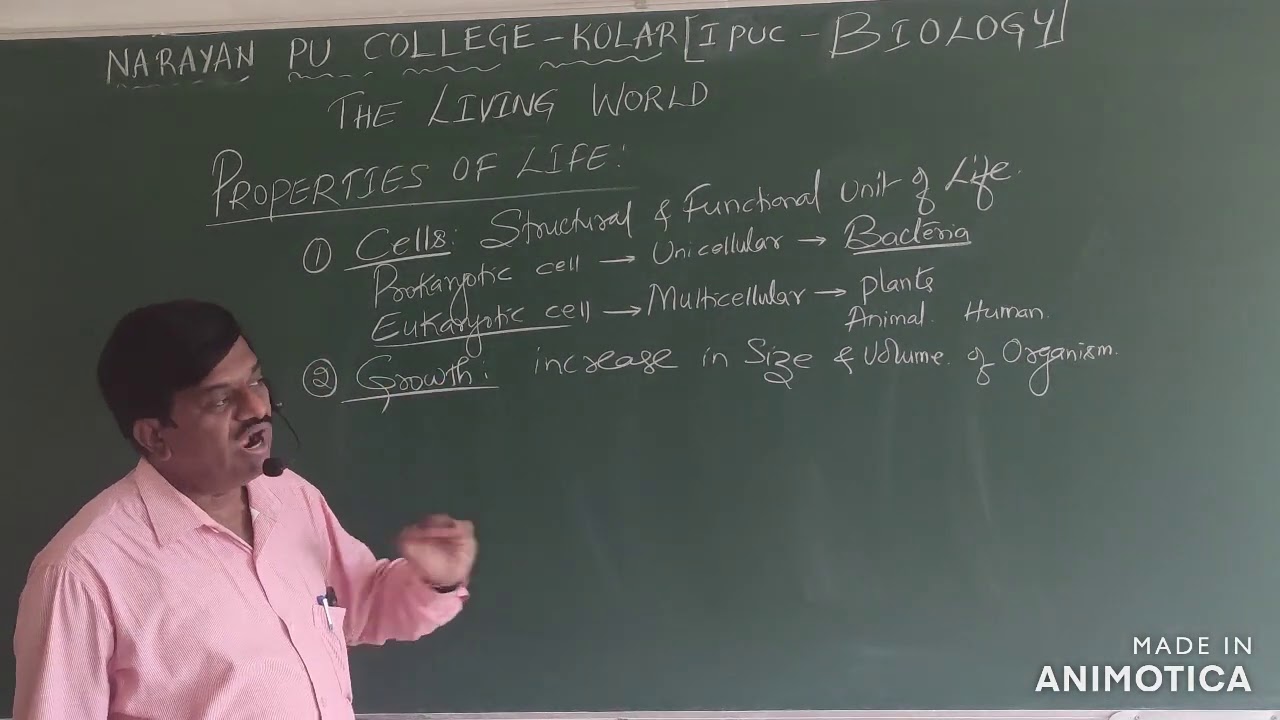 NARAYAN PU COLLEGE - KOLAR [I PUC - BIOLOGY]
THE LIVING WORLD
PROPERTIES OF LIFE:
① Cells: Structural & Functional Unit of Life.
Prokaryotic cell → Unicellular → Bacteria
Eukaryotic cell → Multicellular → plants
Animal. Human.
② Growth: increase in Size & Volume. of Organism.
MADE IN
ANIMOTICA